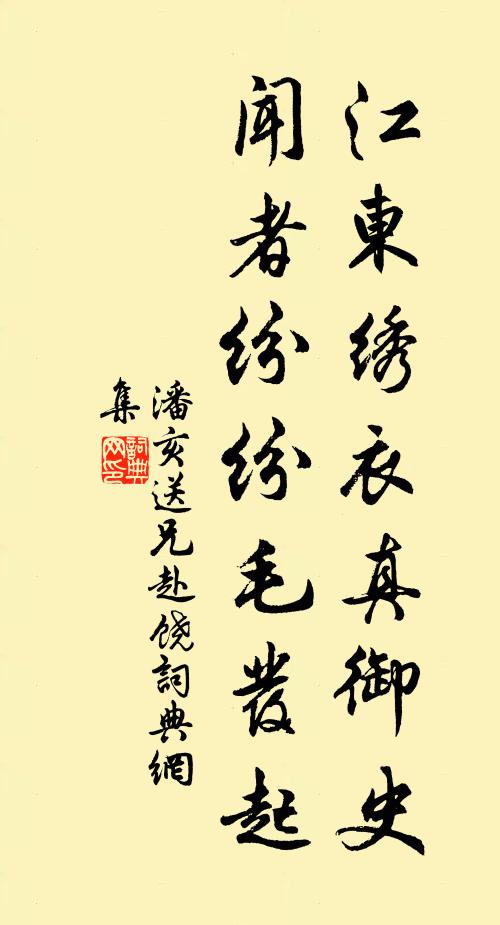 江東綉衣真御史
聞者纷纷毛發起
潘亥送兄赴饶詞典網
集
詞典
网印